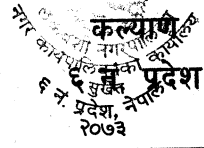 कल्याण
नगर कार्यपालिकाको कार्यालय
६ नं. प्रदेश
सुर्खेत
६ नं. प्रदेश, नेपाल
२०७३